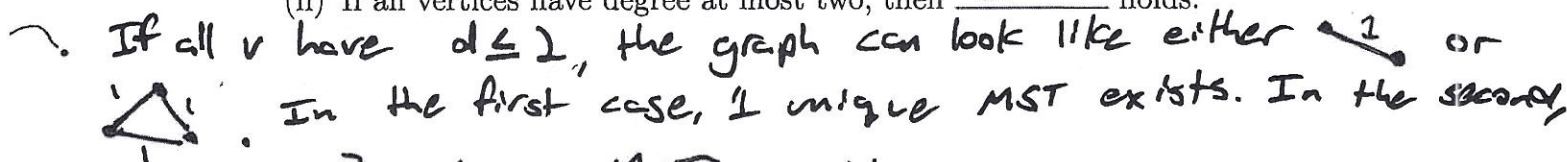 (ii) If all vertices have degree at most two, then ________ holds.
If all v have d ≤ 2, the graph can look like either 1 or
1 1 . In the first case, 1 unique MST exists. In the second,
1